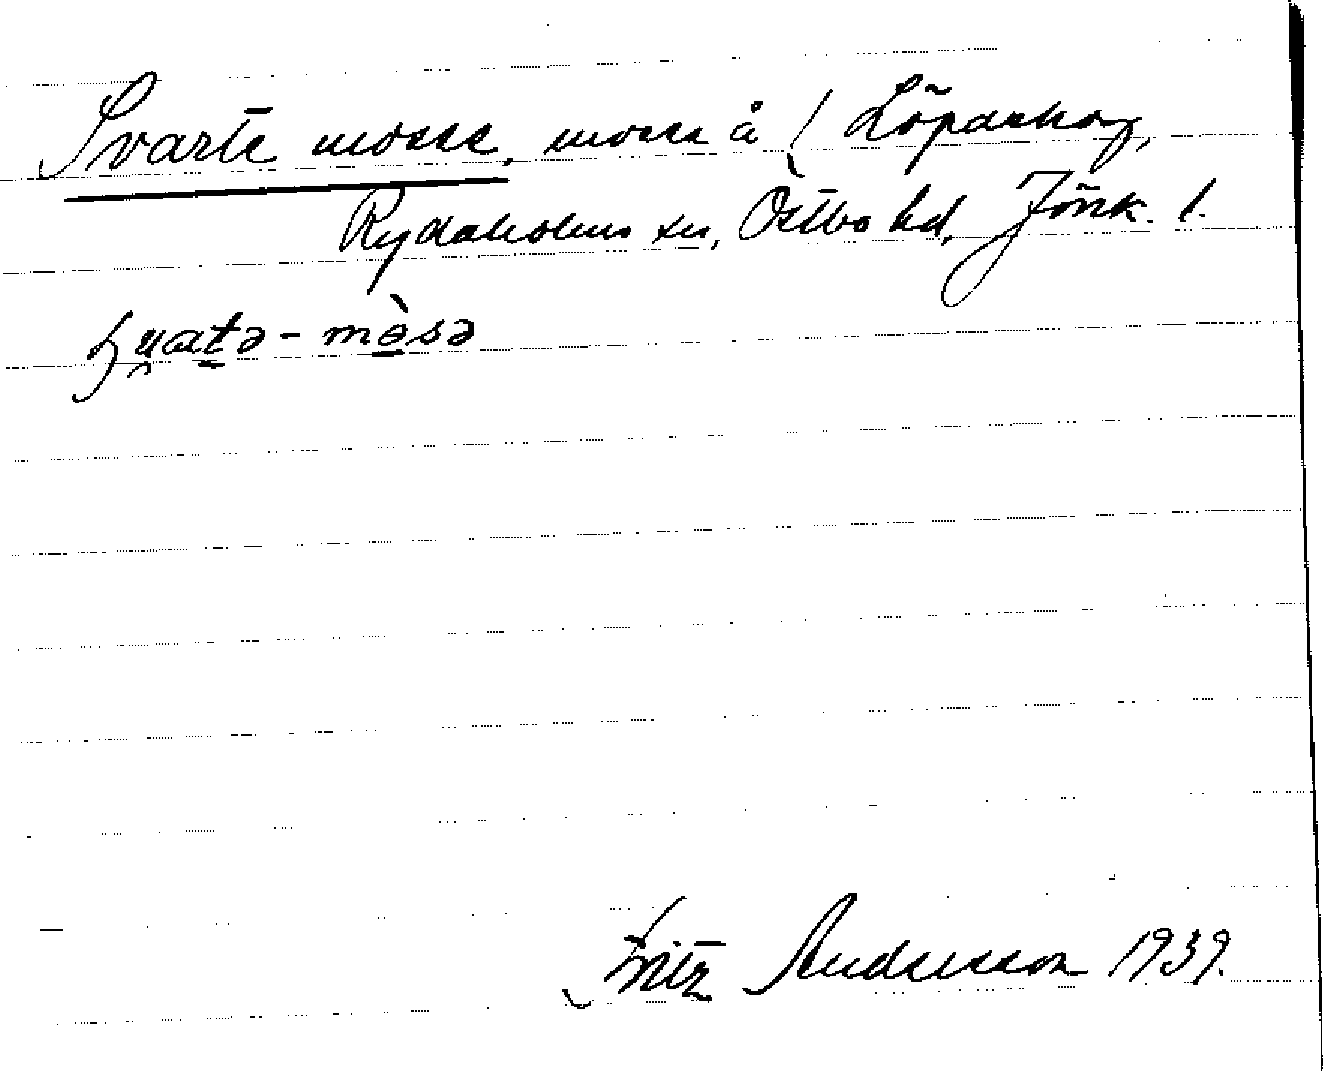 Svarte mosse, mosse å ( Löparskog,
Rydaholms sn, Östbo hd, Jönk. l.
su̯atə - mòsə
Fritz Andersson 1939.